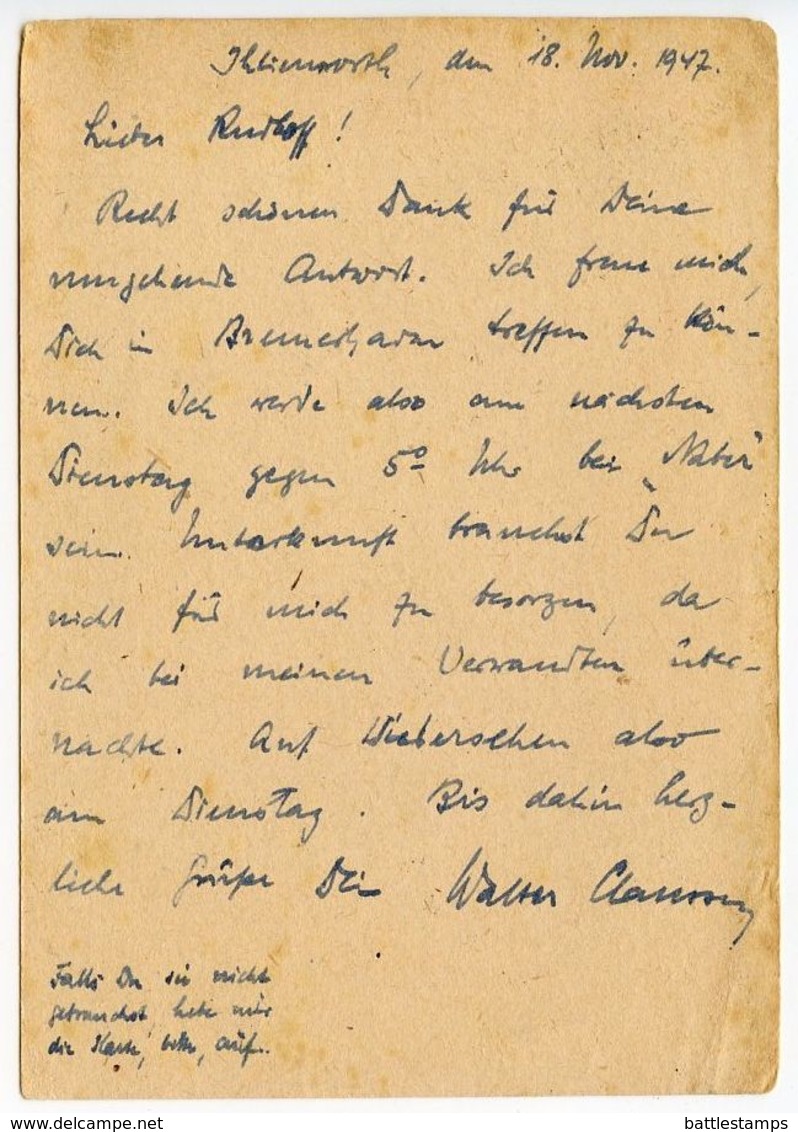 Ihlienworth, den 18. Nov. 1947.
Lieber Rudloff!
Recht schönen Dank für Deine
umgehende Antwort. Ich freue mich,
Dich in Bremerhaven treffen zu kön-
nen. Ich werde also am nächsten
Dienstag gegen 5º Uhr bei „Naber"
sein. Unterkunft brauchst Du
nicht für mich zu besorgen, da
ich bei meinen Verwandten über-
nachte. Auf Wiedersehen also
am Dienstag. Bis dahin herz-
liche Grüße Dein Walter Claussen
Falls Du sie nicht
gebrauchst, hebe mir
die Karte, bitte, auf.
www.delcampe.net
battlestamps